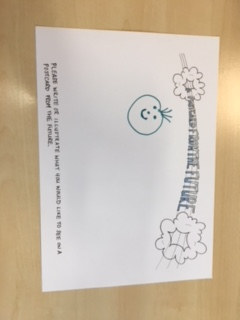 A POSTCARD FROM THE FUTURE
PLEASE WRITE OR ILLUSTRATE WHAT YOU WOULD LIKE TO SEE IN A
POSTCARD FROM THE FUTURE.